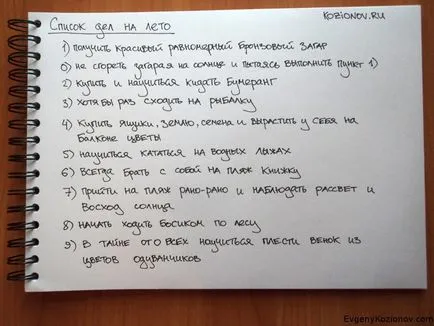 Список дел на лето
KOZIONOV.RU
1) получить красивый равномерный бронзовый загар
0) не сгореть загорая на солнце и пытаясь выполнить пункт 1)
2) купить и научиться кидать бумеранг
3) хотя бы раз сходить на рыбалку
4) купить ящики, землю, семена и вырастить у себя на
балконе цветы
5) научиться кататься на водных лыжах
6) всегда брать с собой на пляж книжку
7) прийти на пляж рано-рано и наблюдать рассвет и
восход солнца
8) начать ходить босиком по лесу
9) в тайне ото всех научиться плести венок из
цветов одуванчиков
EvgenyKozionov.com